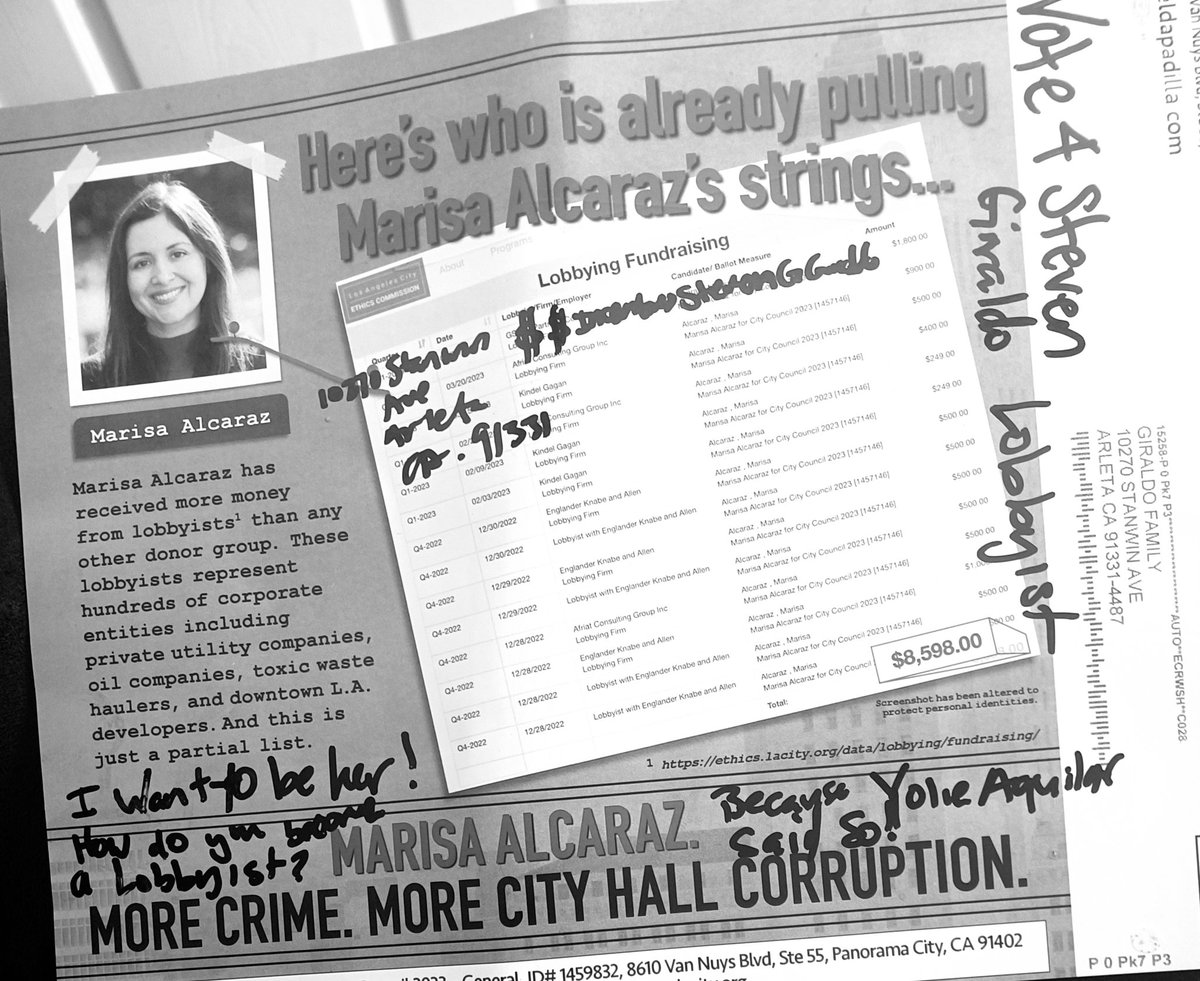 Here's who is already pulling
Marisa Alcaraz's strings...
Marisa Alcaraz
Marisa Alcaraz has
received more money
from lobbyists¹ than any
other donor group. These
lobbyists represent
hundreds of corporate
entities including
private utility companies,
oil companies, toxic waste
haulers, and downtown L.A.
developers. And this is
just a partial list.
Los Angeles City
ETHICS COMMISSION
About
Programs
Lobbying Fundraising
Date
Firm/Employer
Candidate/ Ballot Measure
Amount
$1,800.00
Alcaraz , Marisa
Marisa Alcaraz for City Council 2023 [1457146]
$900.00
03/20/2023
Afriat Consulting Group Inc
Lobbying Firm
Alcaraz , Marisa
Marisa Alcaraz for City Council 2023 [1457146]
$500.00
Kindel Gagan
Lobbying Firm
Alcaraz , Marisa
Marisa Alcaraz for City Council 2023 [1457146]
$400.00
Consulting Group Inc
Lobbying Firm
Alcaraz , Marisa
Marisa Alcaraz for City Council 2023 [1457146]
$249.00
02/09/2023
Kindel Gagan
Lobbying Firm
Alcaraz , Marisa
Marisa Alcaraz for City Council 2023 [1457146]
$249.00
Q1-2023
02/03/2023
Kindel Gagan
Lobbying Firm
Alcaraz , Marisa
Marisa Alcaraz for City Council 2023 [1457146]
$500.00
Q4-2022
12/30/2022
Englander Knabe and Allen
Lobbying Firm
Alcaraz , Marisa
Marisa Alcaraz for City Council 2023 [1457146]
$500.00
Q4-2022
12/30/2022
Lobbyist with Englander Knabe and Allen
Alcaraz , Marisa
Marisa Alcaraz for City Council 2023 [1457146]
$500.00
Q4-2022
12/29/2022
Englander Knabe and Allen
Lobbying Firm
Alcaraz , Marisa
Marisa Alcaraz for City Council 2023 [1457146]
$500.00
Q4-2022
12/29/2022
Lobbyist with Englander Knabe and Allen
Alcaraz , Marisa
Marisa Alcaraz for City Council 2023 [1457146]
Q4-2022
12/28/2022
Afriat Consulting Group Inc
Lobbying Firm
Alcaraz , Marisa
Marisa Alcaraz for City Council 2023 [1457146]
$500.00
Q4-2022
12/28/2022
Englander Knabe and Allen
Lobbying Firm
Q4-2022
12/28/2022
Lobbyist with Englander Knabe and Allen
Alcaraz , Marisa
Marisa Alcaraz for City Council
Q4-2022
12/28/2022
Lobbyist with Englander Knabe and Allen
Total:
$8,598.00
Screenshot has been altered to
protect personal identities.
1 https://ethics.lacity.org/data/lobbying/fundraising/
10270 Stanwin
Ave
Arleta
CA. 91331
$$
I want to be her!
How do you become
a Lobbyist?
Because Yolie Aquilar
said so!
MARISA ALCARAZ.
MORE CRIME. MORE CITY HALL CORRUPTION.
General, ID# 1459832, 8610 Van Nuys Blvd, Ste 55, Panorama City, CA 91402
Vote 4 Steven
Giraldo Lobbyist
eldapadilla com
GIRALDO FAMILY
10270 STANWIN AVE
ARLETA CA 91331-4487
P 0 Pk7 P3